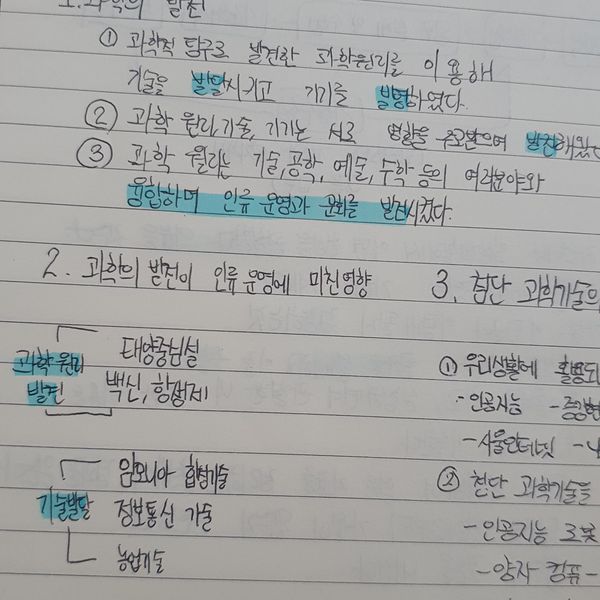 1. 과학의 발전
① 과학적 탐구로 발견한 과학원리를 이용해
기술을 발달시키고 기기를 발명하였다.
② 과학 원리, 기술, 기기는 서로 영향을 주고받으며 발전해왔
③ 과학 원리는 기술, 공학, 예술, 수학 등의 여러분야와
융합하며 인류 문명과 문화를 발전시켰다.
2. 과학의 발전이 인류 문명에 미친영향
과학 원리
발견
태양중심설
백신, 항생제
기술발달
암모니아 합성기술
정보통신 기술
농업기술
3. 첨단 과학기술의
① 우리생활에 활용되
- 인공지능 - 증강현
- 사물인터넷 - 나
② 첨단 과학기술을
- 인공지능 로봇
- 양자 컴퓨 -